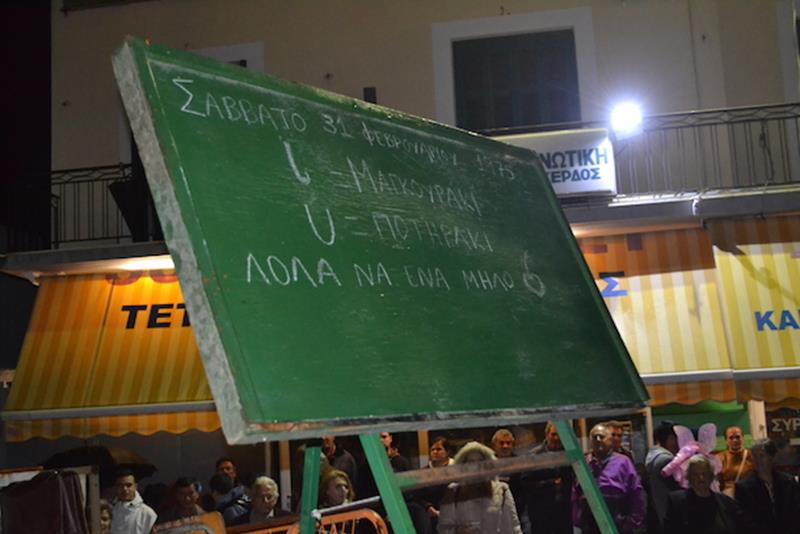 ΣΑΒΒΑΤΟ 31 ΦΕΒΡΟΥΑΡΙΟΥ 1975
Ɩ = ΜΑΓΚΟΥΡΑΚΙ
U = ΠΟΤΗΡΑΚΙ
ΛΟΛΑ ΝΑ ΕΝΑ ΜΗΛΟ
ΝΩΤΙΚΗ
ΚΕΡΔΟΣ
ΤΕΤ
Σ
ΚΑ
ΣΥΡ